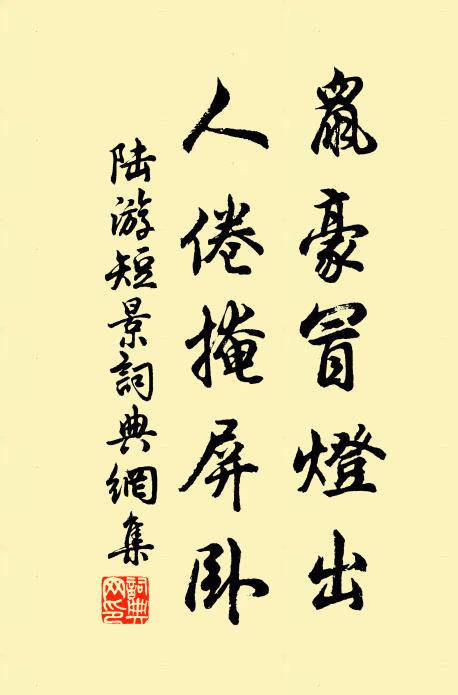 鼠豪冒燈出
人倦掩屏臥
陆游短景詞典網集
詞典网印